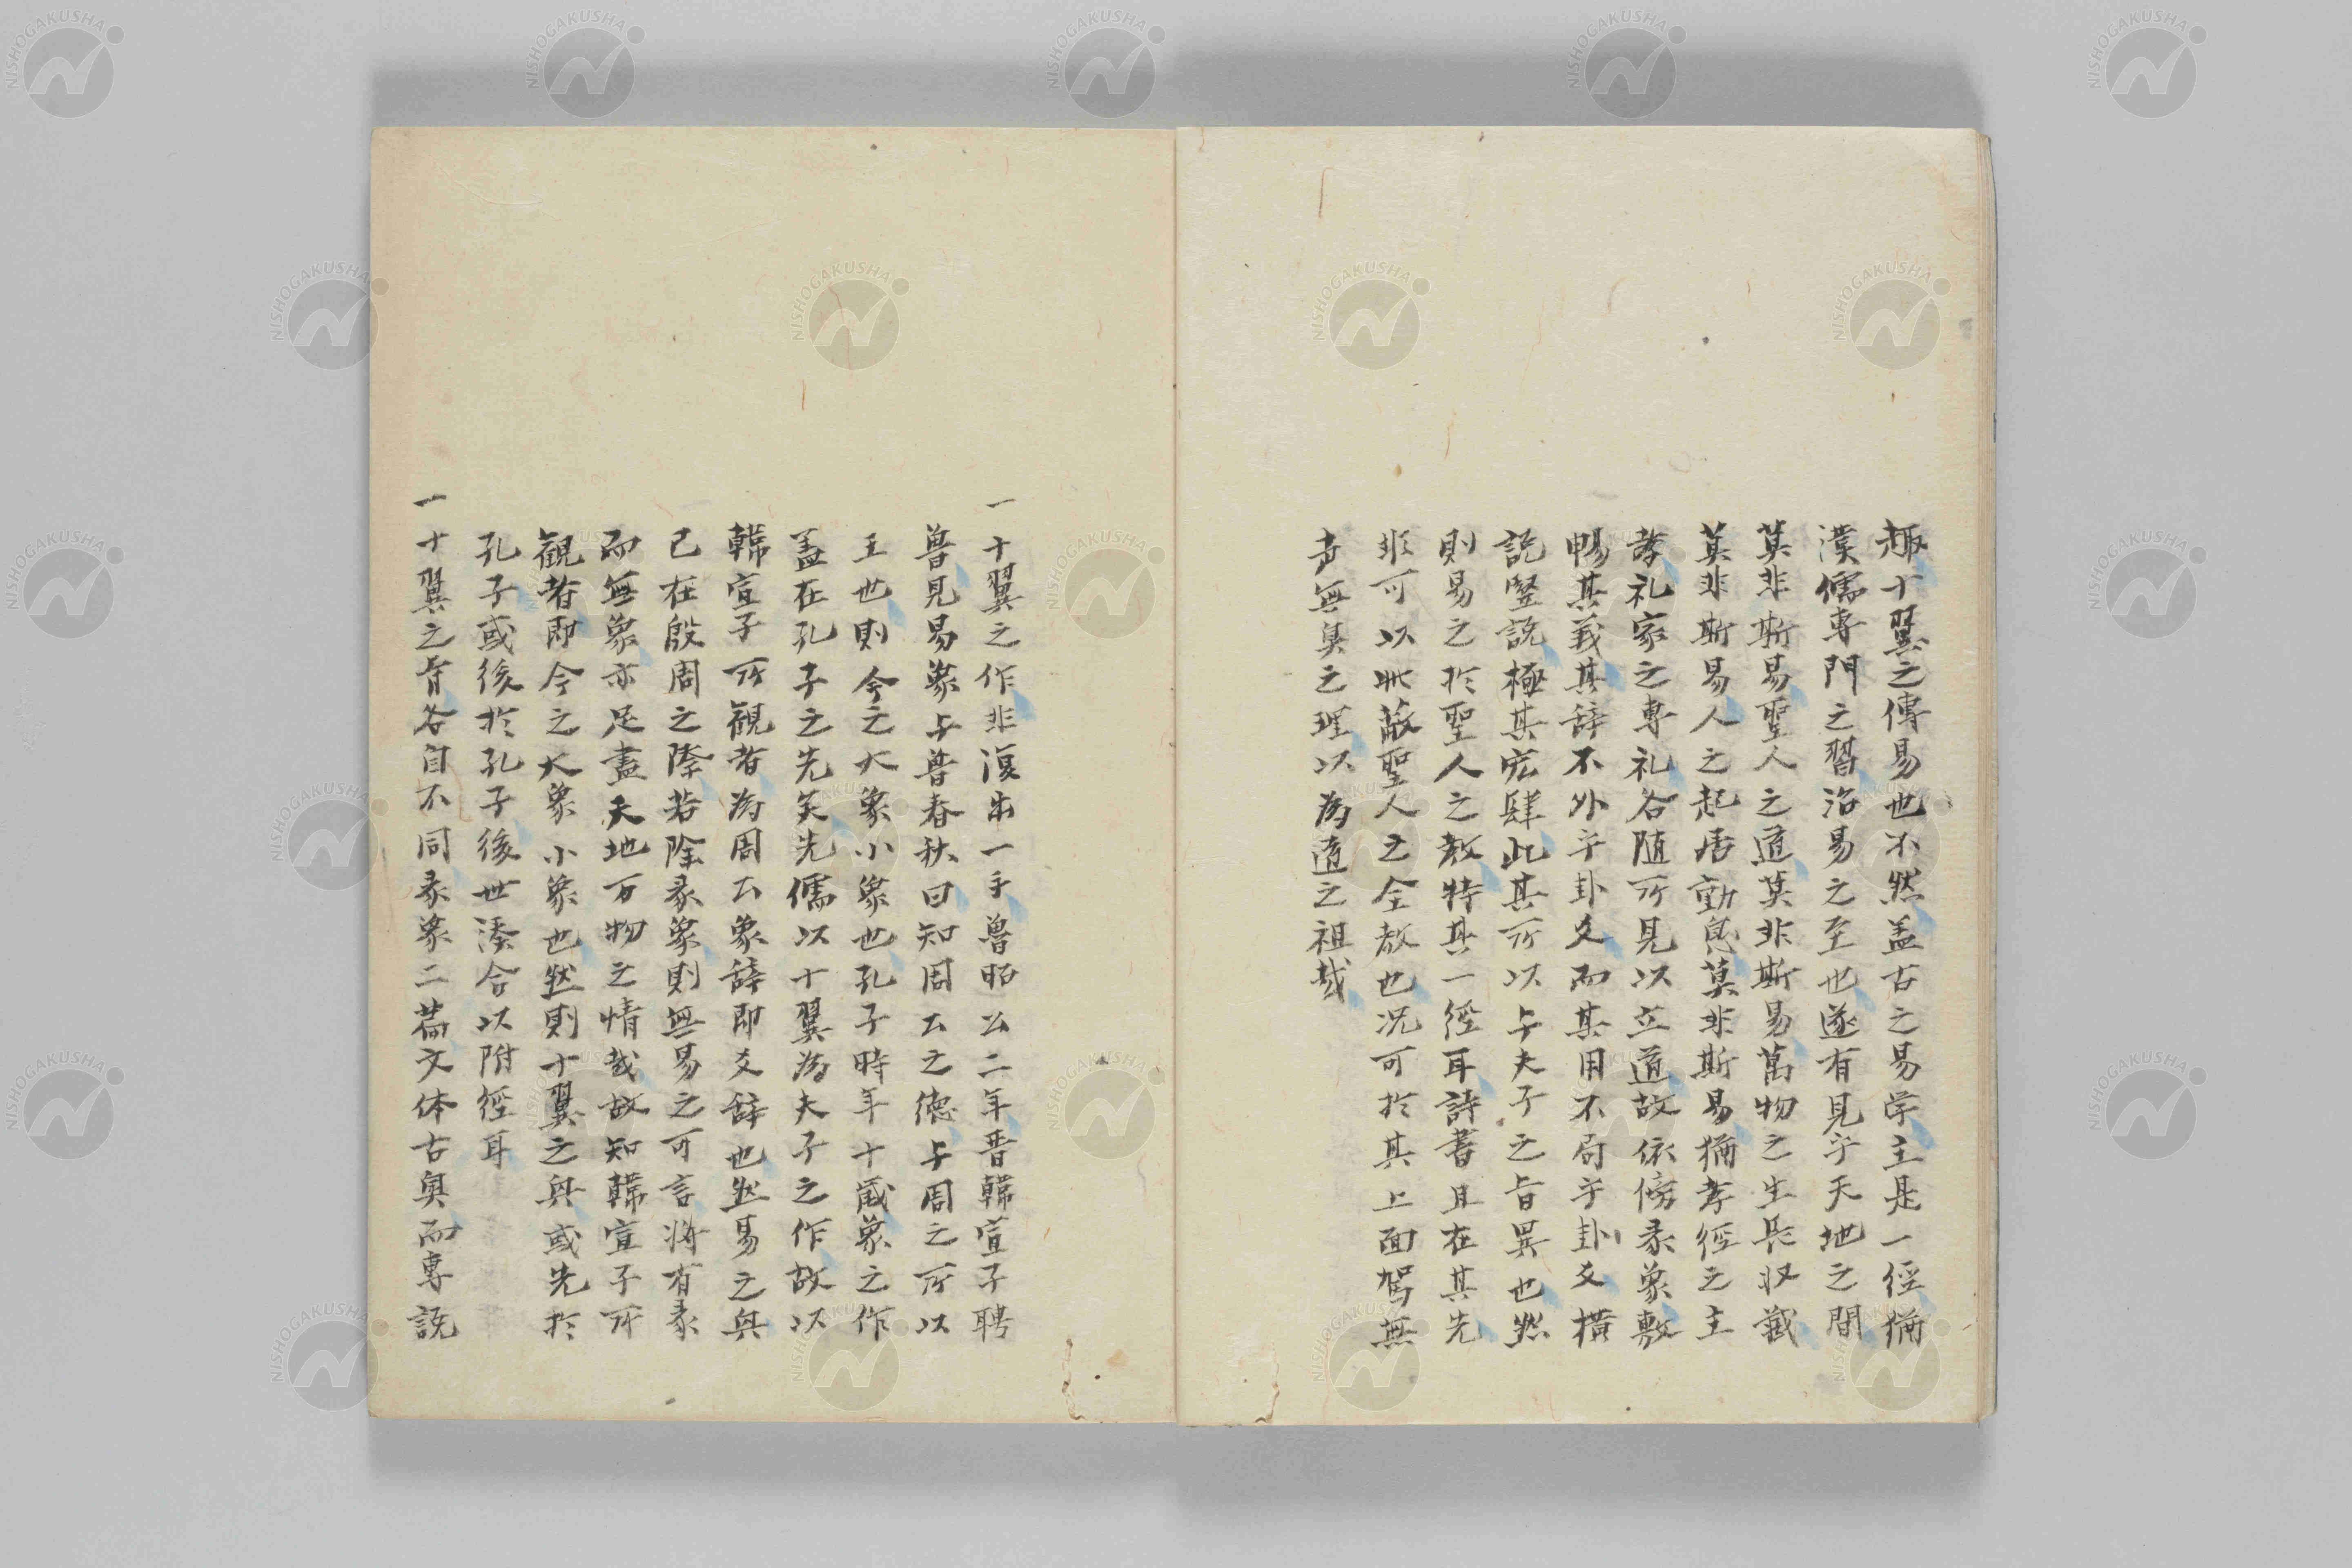 趣十翼之傳易也不然盖古之易学主是一経猶
漢儒専門之習治易之至也遂有見乎天地之間
莫非斯易聖人之道莫非斯易萬物之生長収藏
莫非斯易人之起居動息莫非斯易猶孝経之主
孝礼家之専礼各随所見以立道故依傍彖象敷
暢其義其辞不外乎卦爻而其用不局乎卦爻横
説竪説極其宏肆此其所以与夫子之旨異也然
則易之於聖人之教特其一経耳詩書且在其先
非可以此蔽聖人之全教也況可於其上面駕無
声無臭之理以為道之祖哉
一十翼之作非復出一手魯昭公二年晋韓宣子聘
魯見易象与魯春秋曰知周公之徳与周之所以
王也則今之大象小象也孔子時年十歳象之作
盖在孔子之先矣先儒以十翼為夫子之作故以
韓宣子所観者為周公象辞即爻辞也然易之興
已在殷周之際若除彖象則無易之可言将有彖
而無象亦足盡天地万物之情哉故知韓宣子所
観者即今之大象小象也然則十翼之興或先於
孔子或後於孔子後世湊合以附経耳
一十翼之旨各自不同彖象二篇文体古奥而専説
NISHOGAKUSHA